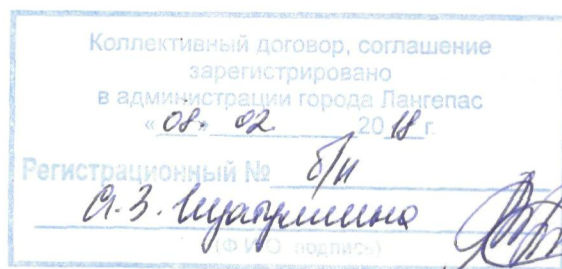 Коллективный договор, соглашение
зарегистрировано
в администрации города Лангепас
« 08 » 02 20 18 г.
Регистрационный № б/н
А.З.
(Ф.И.О. подпись)